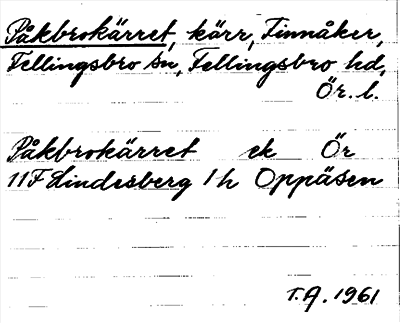 Påkbrokärret, kärr, Finnåker,
Fellingsbro sn, Fellingsbro hd,
Ör. l.
Påkbrokärret ek Ör
11F Lindesberg 1h Oppåsen
T.A. 1961